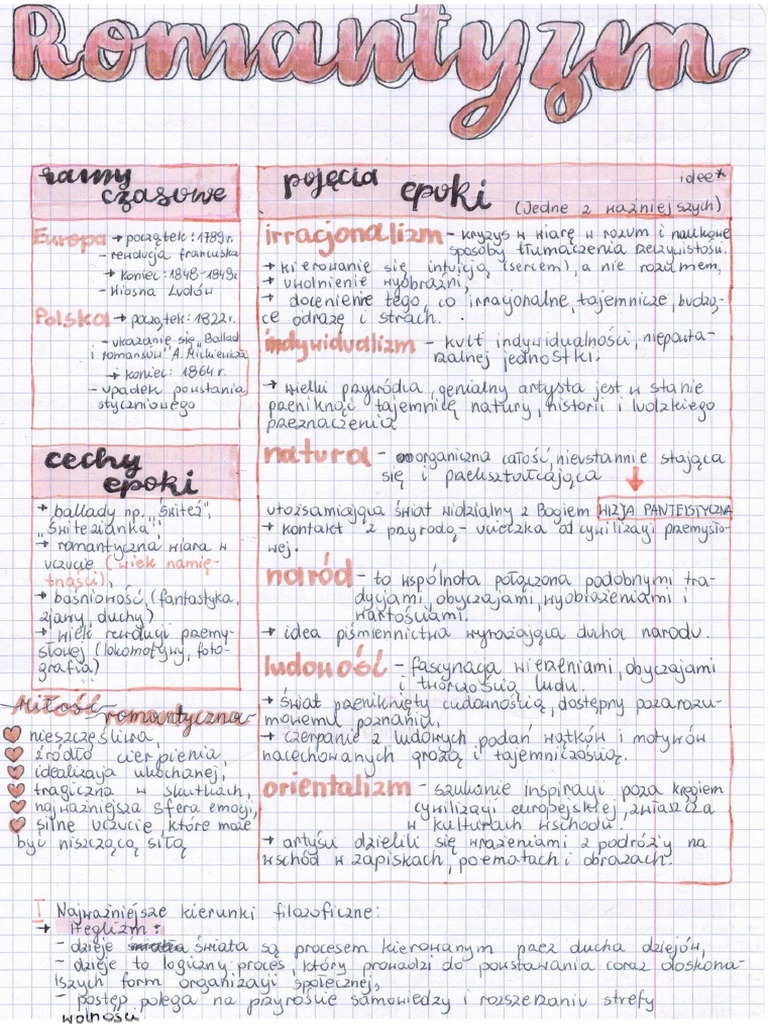 Romantyzm
ramy
czasowe
Europa → początek: 1789r.
- rewolucja francuska
→ koniec: 1848-1849r.
- Wiosna Ludów
Polska → początek: 1822r.
- ukazanie się „Ballad
i romansów" A. Mickiewicza
→ koniec: 1864 r.
- upadek powstania
styczniowego
cechy
epoki
→ ballady np. „Świteź",
„Świtezianka",
→ romantyczna wiara w
uczucie (wiek namię-
tności),
→ baśniowość (fantastyka,
zjawy, duchy)
→ wiek rewolucji przemy-
słowej (lokomotywy, foto-
grafia)
Miłość
romantyczna
nieszczęśliwa,
źródło cierpienia,
idealizacja ukochanej,
tragiczna w skutkach,
najważniejsza sfera emocji,
silne uczucie które może
być niszczącą siłą
pojęcia
epoki
idee*
(Jedne z ważniejszych)
irracjonalizm - kryzys w wiarę w rozum i naukowe
sposoby tłumaczenia rzeczywistości.
→ kierowanie się intuicją (sercem), a nie rozumem,
→ uwolnienie wyobraźni,
→ docenienie tego, co irracjonalne, tajemnicze, budzą-
ce odrazę i strach.
indywidualizm - kult indywidualności, niepowta-
rzalnej jednostki.
→ wielki przywódca, genialny artysta jest w stanie
przeniknąć tajemnicę natury, historii i ludzkiego
przeznaczenia
natura - organiczna całość, nieustannie stająca
się i przekształcająca
utożsamiająca świat widzialny z Bogiem WIZJA PANTEISTYCZNA
→ kontakt z przyrodą - ucieczka od cywilizacji przemysło-
wej.
naród - to wspólnota połączona podobnymi tra-
dycjami, obyczajami, wyobrażeniami i
wartościami.
→ idea piśmiennictwa wyrażająca ducha narodu.
ludowość - fascynacja wierzeniami, obyczajami
i twórczością ludu.
→ świat przeniknięty cudownością, dostępny pozarozu-
mowemu poznaniu,
→ czerpanie z ludowych podań wątków i motywów
nacechowanych grozą i tajemniczością.
orientalizm - szukanie inspiracji poza kręgiem
cywilizacji europejskiej, zwłaszcza
w kulturach wschodu.
→ artyści dzielili się wrażeniami z podróży na
wschód w zapiskach, poematach i obrazach.
I Najważniejsze kierunki filozoficzne:
→ Heglizm:
- dzieje świata są procesem kierowanym przez ducha dziejów,
- dzieje to logiczny proces, który prowadzi do powstawania coraz doskona-
lszych form organizacji społecznej,
- postęp polega na przyroście samowiedzy i rozszerzaniu strefy
wolności